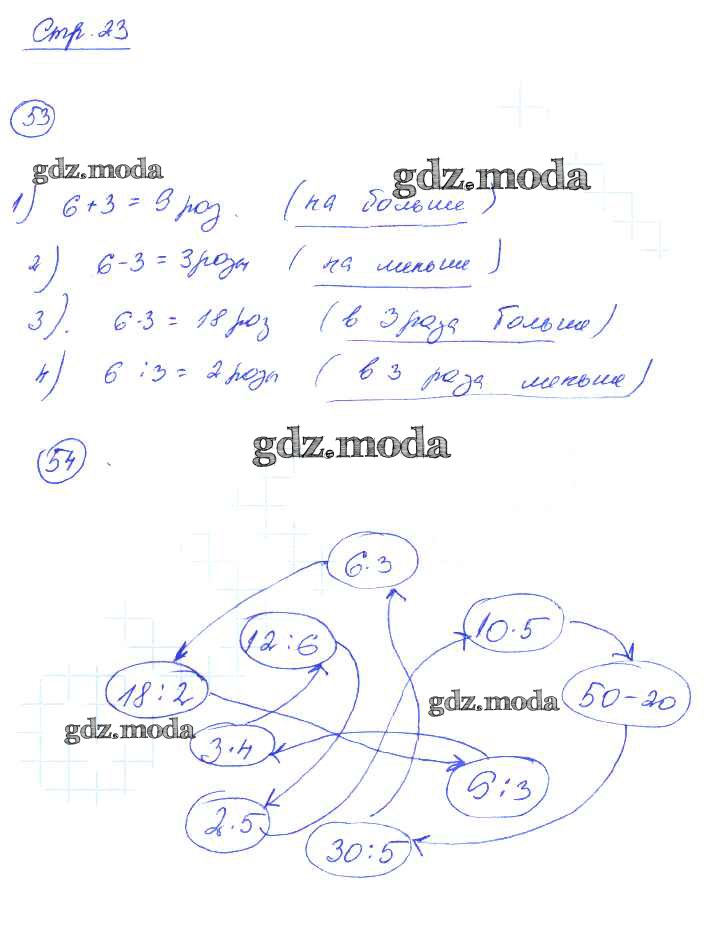 Стр. 23
53
gdz.moda
gdz.moda
1) 6+3 = 9 роз. (на больше)
2) 6-3 = 3 розы (на меньше)
3). 6·3 = 18 роз (в 3 раза больше)
4) 6:3 = 2 розы (в 3 раза меньше)
gdz.moda
54
6·3
12:6
10·5
18:2
50-20
gdz.moda
gdz.moda
3·4
9:3
2·5
30:5